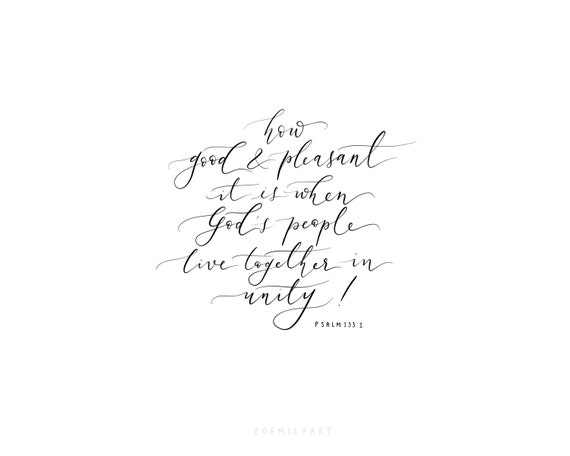 how
good & pleasant
it is when
God's people
live together in
unity!
PSALM 133:1
ZOEMILYART